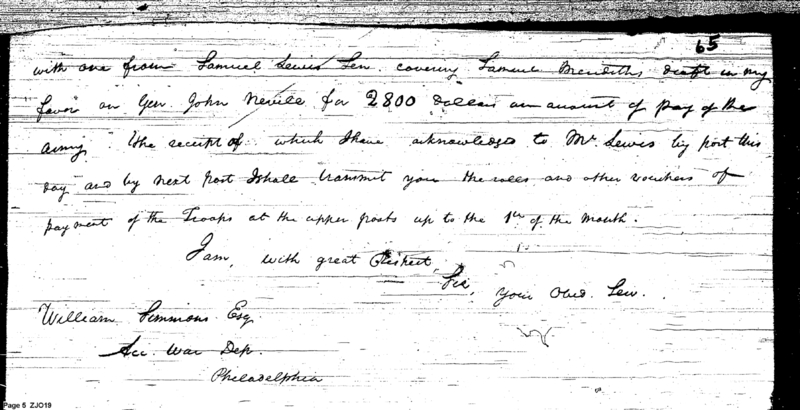 65
with one from Samuel Lewis Sen. covering Samuel Merediths draft in my
favor on Gen John Nevill for 2800 Dollars on amount of pay of the
army. The receipt of which I have acknowledged to Mr. Lewis by post this
day and by next post I shall transmit you the rolls and other vouchers of
payment of the Troops at the upper posts up to the 1st of the Month.
I am, with great Respect,
Sir, your Obed. Ser.
William Simmons Esq
Acc. War Dep.
Philadelphia
Page 5 ZJO19